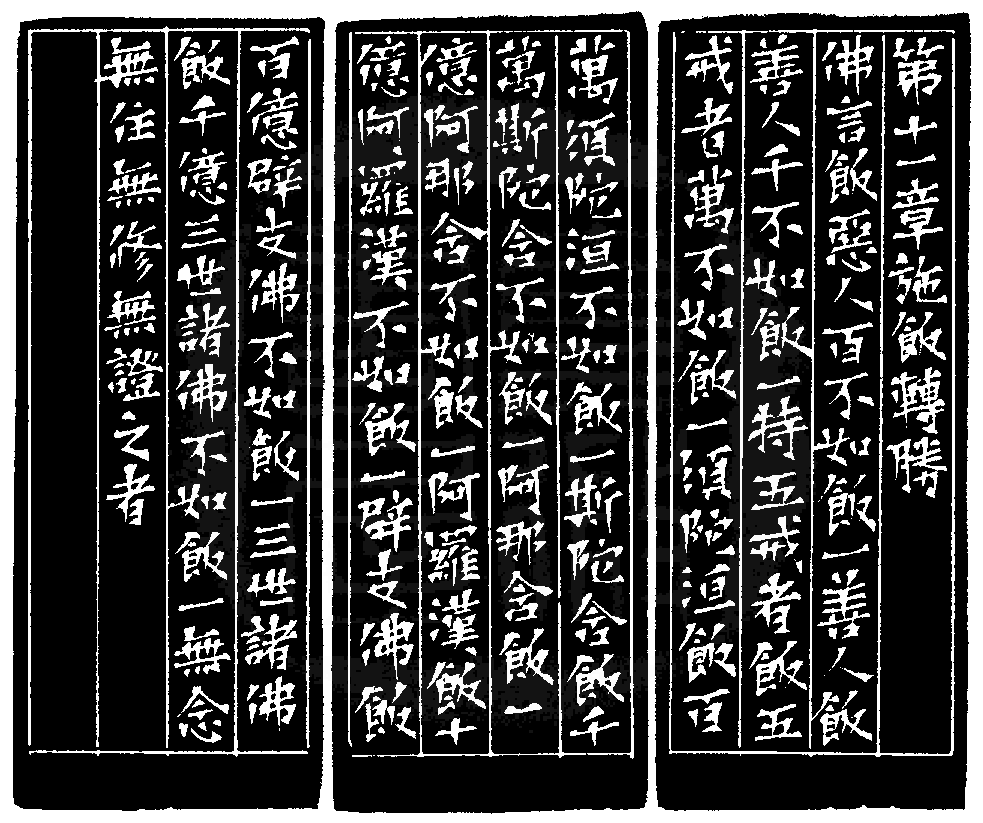 第十一章施飯轉勝
佛言飯惡人百不如飯一善人飯
善人千不如飯一持五戒者飯五
戒者萬不如飯一須陀洹飯百
萬須陀洹不如飯一斯陀含飯千
萬斯陀含不如飯一阿那含飯一
億阿那含不如飯一阿羅漢飯十
億阿羅漢不如飯一辟支佛飯
百億辟支佛不如飯一三世諸佛
飯千億三世諸佛不如飯一無念
無住無修無證之者